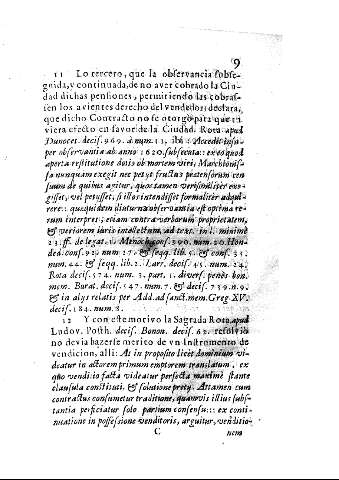 9
11 Lo tercero, que la observancia subse-
guida, y continuada, de no aver cobrado la Ciu-
dad dichas pensiones, permitiendo las cobras-
sen los avientes derecho del vendedor: declara,
que dicho Contracto no se otorgò para que tu
viera efecto en favor de la Ciudad. Rota apud
Dunocet. decis. 969. a num. 11, ibi: Accedit insu-
per observantia ab anno 1620. subsecuta:: ex eo quod
aperta restitutione dotis ob mortem viri; Marchionis-
sa nunquam exegit nec petyt fructus prætensorum cen-
suum de quibus agitur, quos tamen verisimiliter exe-
gisset, vel petysset, si illos intendisset formaliter adqui-
rere:: quæquidem illiusmodi observantia est optima re-
rum interpres; etiam contra verborum proprietatem,
& veriorem iuris intellectum, ad text. in l. minimè
23. ff. de legat. 1. Menoch. cons. 390. num. 20. Hon-
ded. cons. 92. num. 27. & seqq. lib. 5. & cons. 33.
num. 44. & seqq. lib. 2. decis. 45. num. 24.
Rota decis. 574. num. 3. part. 1. divers. penès bon.
mem. Burat. decis. 547. num. 7. & decis. 739. n. 9.
& in alys relatis per Add. ad sanct. mem. Greg. XV.
decis. 184. num. 8.
12 Y con este motivo la Sagrada Rota, apud
Ludov. Posth. decis. Bonon. decis. 62. resolviò
no devia hazerse merito de vn Instrumento de
vendicion, alli: At in proposito licet dominium vi-
deatur in actorem primum emptorem translatum, ex
quo vendi io facta videatur perfecta maximè stante
clausula constituti, & solutione prety. Attamen cum
contractus consumetur traditione, quamvis illius subs-
tantia perficiatur solo partium consensu:: ex conti-
nuatione in possessione venditoris, arguitur, venditio-
C nem